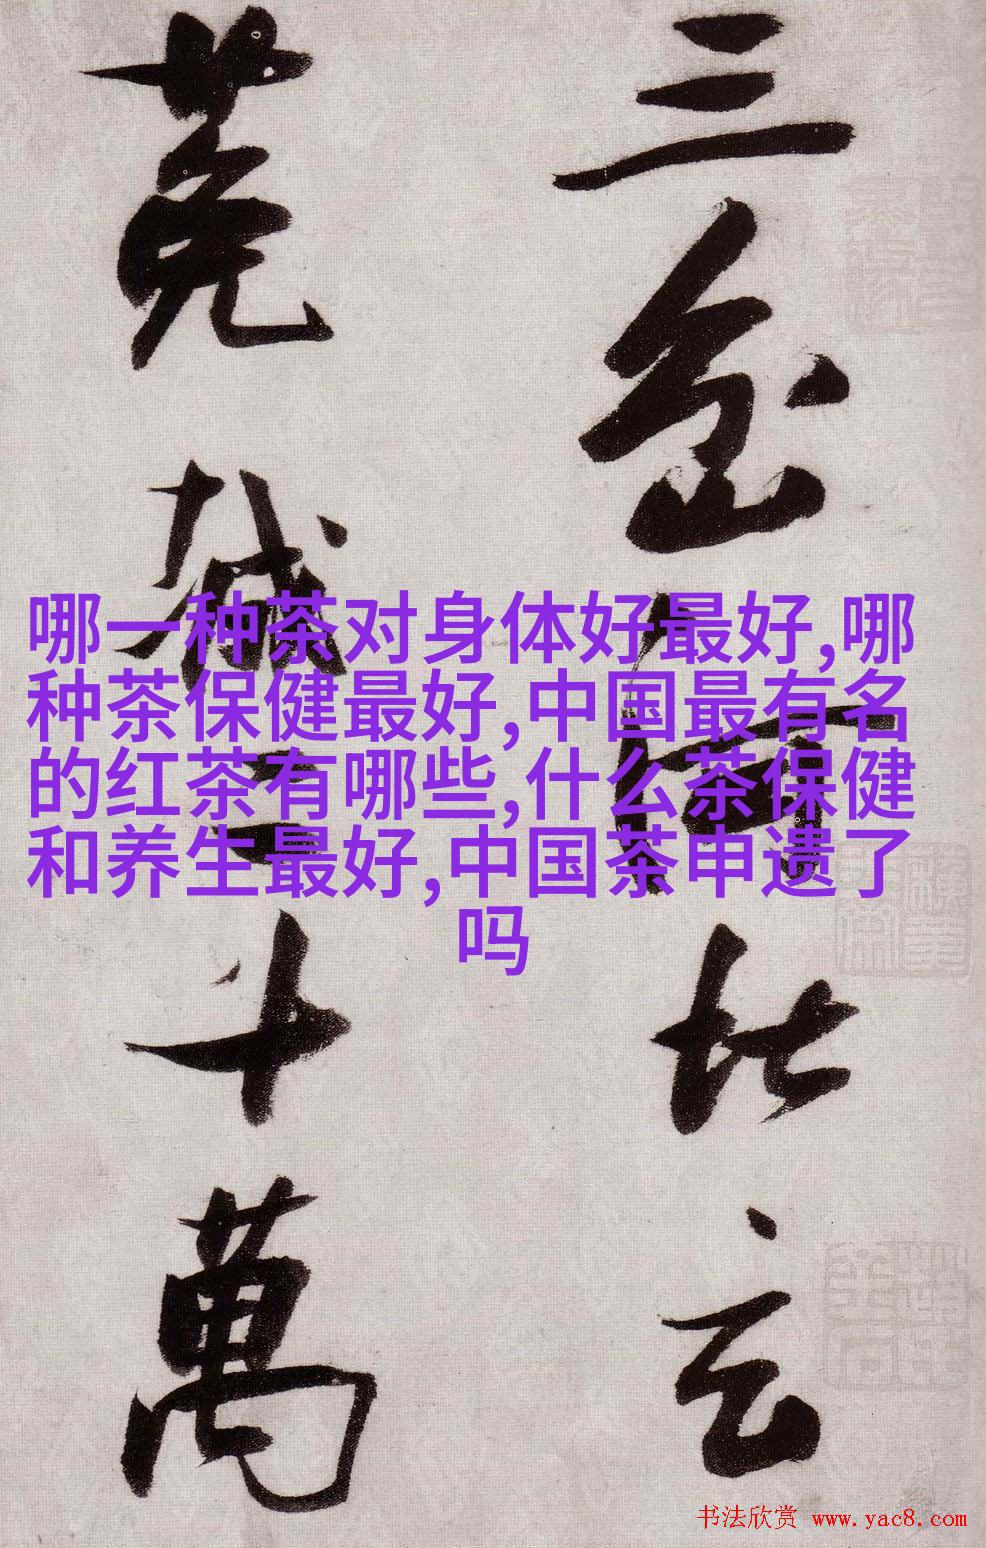 三 臣 比 玄
菟 越 二 十 萬
哪一种茶对身体好最好,哪
种茶保健最好,中国最有名
的红茶有哪些,什么茶保健
和养生最好,中国茶申遗了
吗
书法欣赏 www.yac8.com